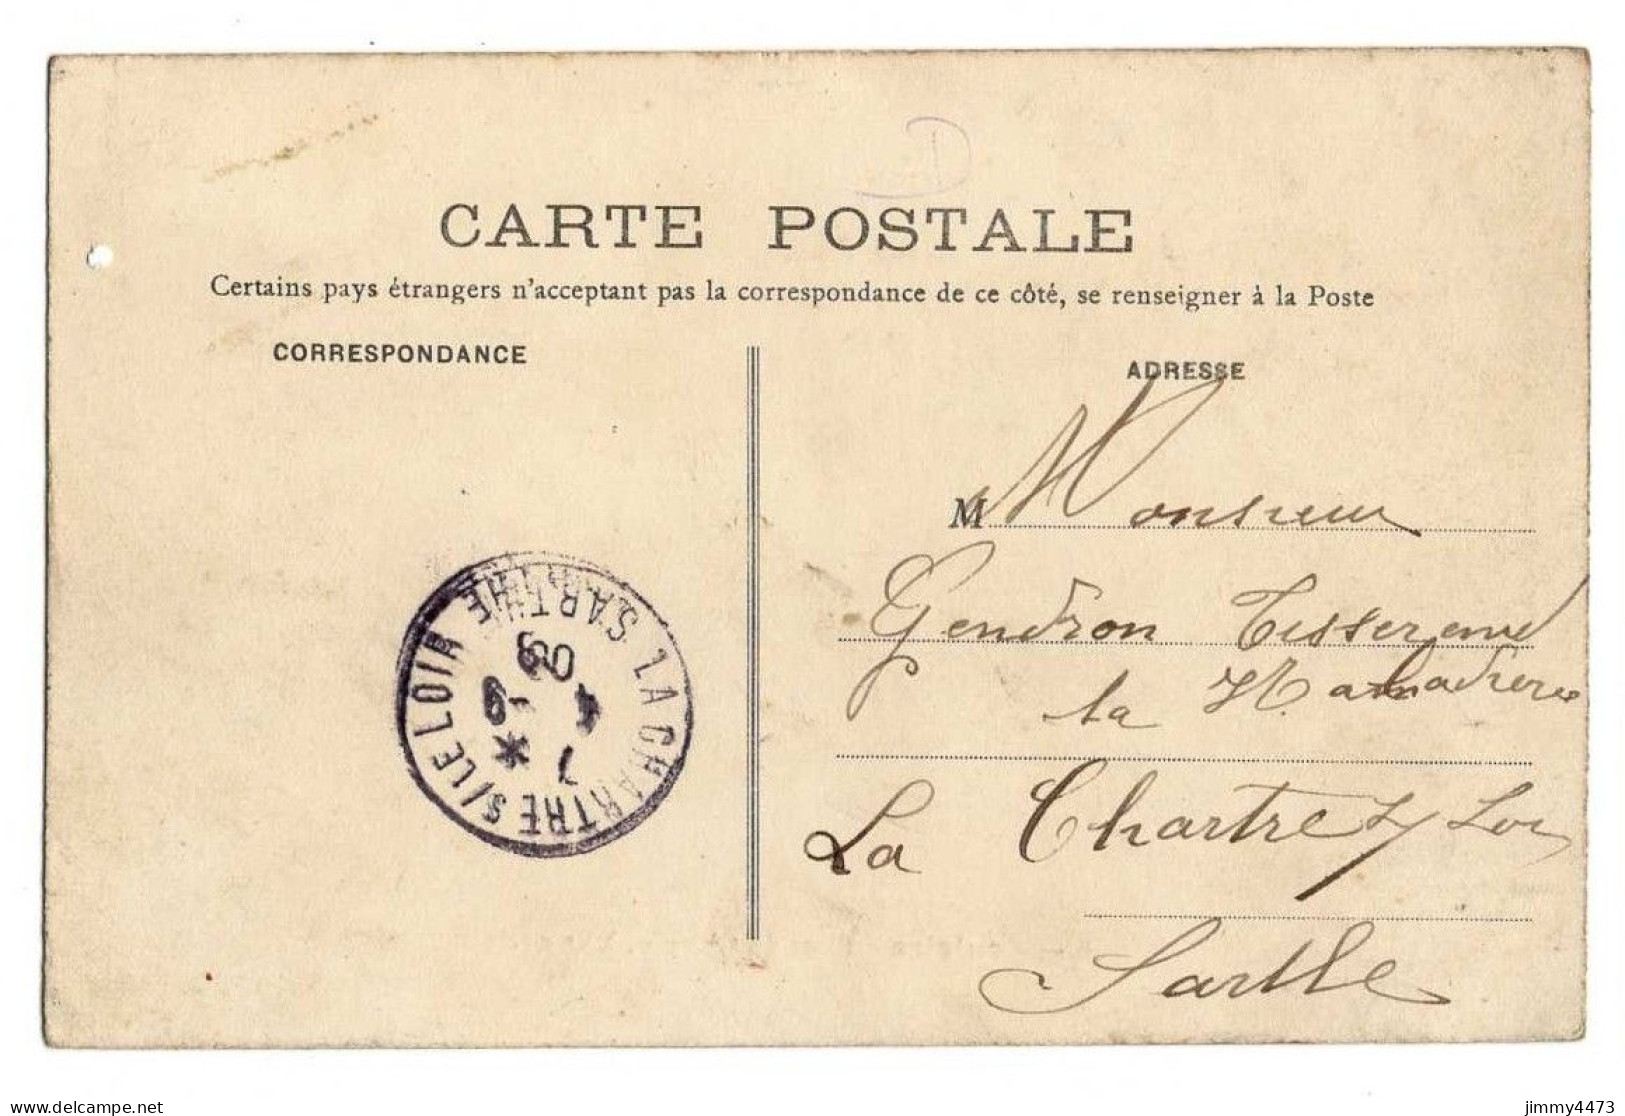 CARTE POSTALE
Certains pays étrangers n'acceptant pas la correspondance de ce côté, se renseigner à la Poste
CORRESPONDANCE
ADRESSE
M Monsieur
Gendron Tisserand
la Maladrerie
La Chartre s/ Loir
Sarthe
LA CHARTRE S/LE LOIR SARTHE
delcampe.net
jimmy4473